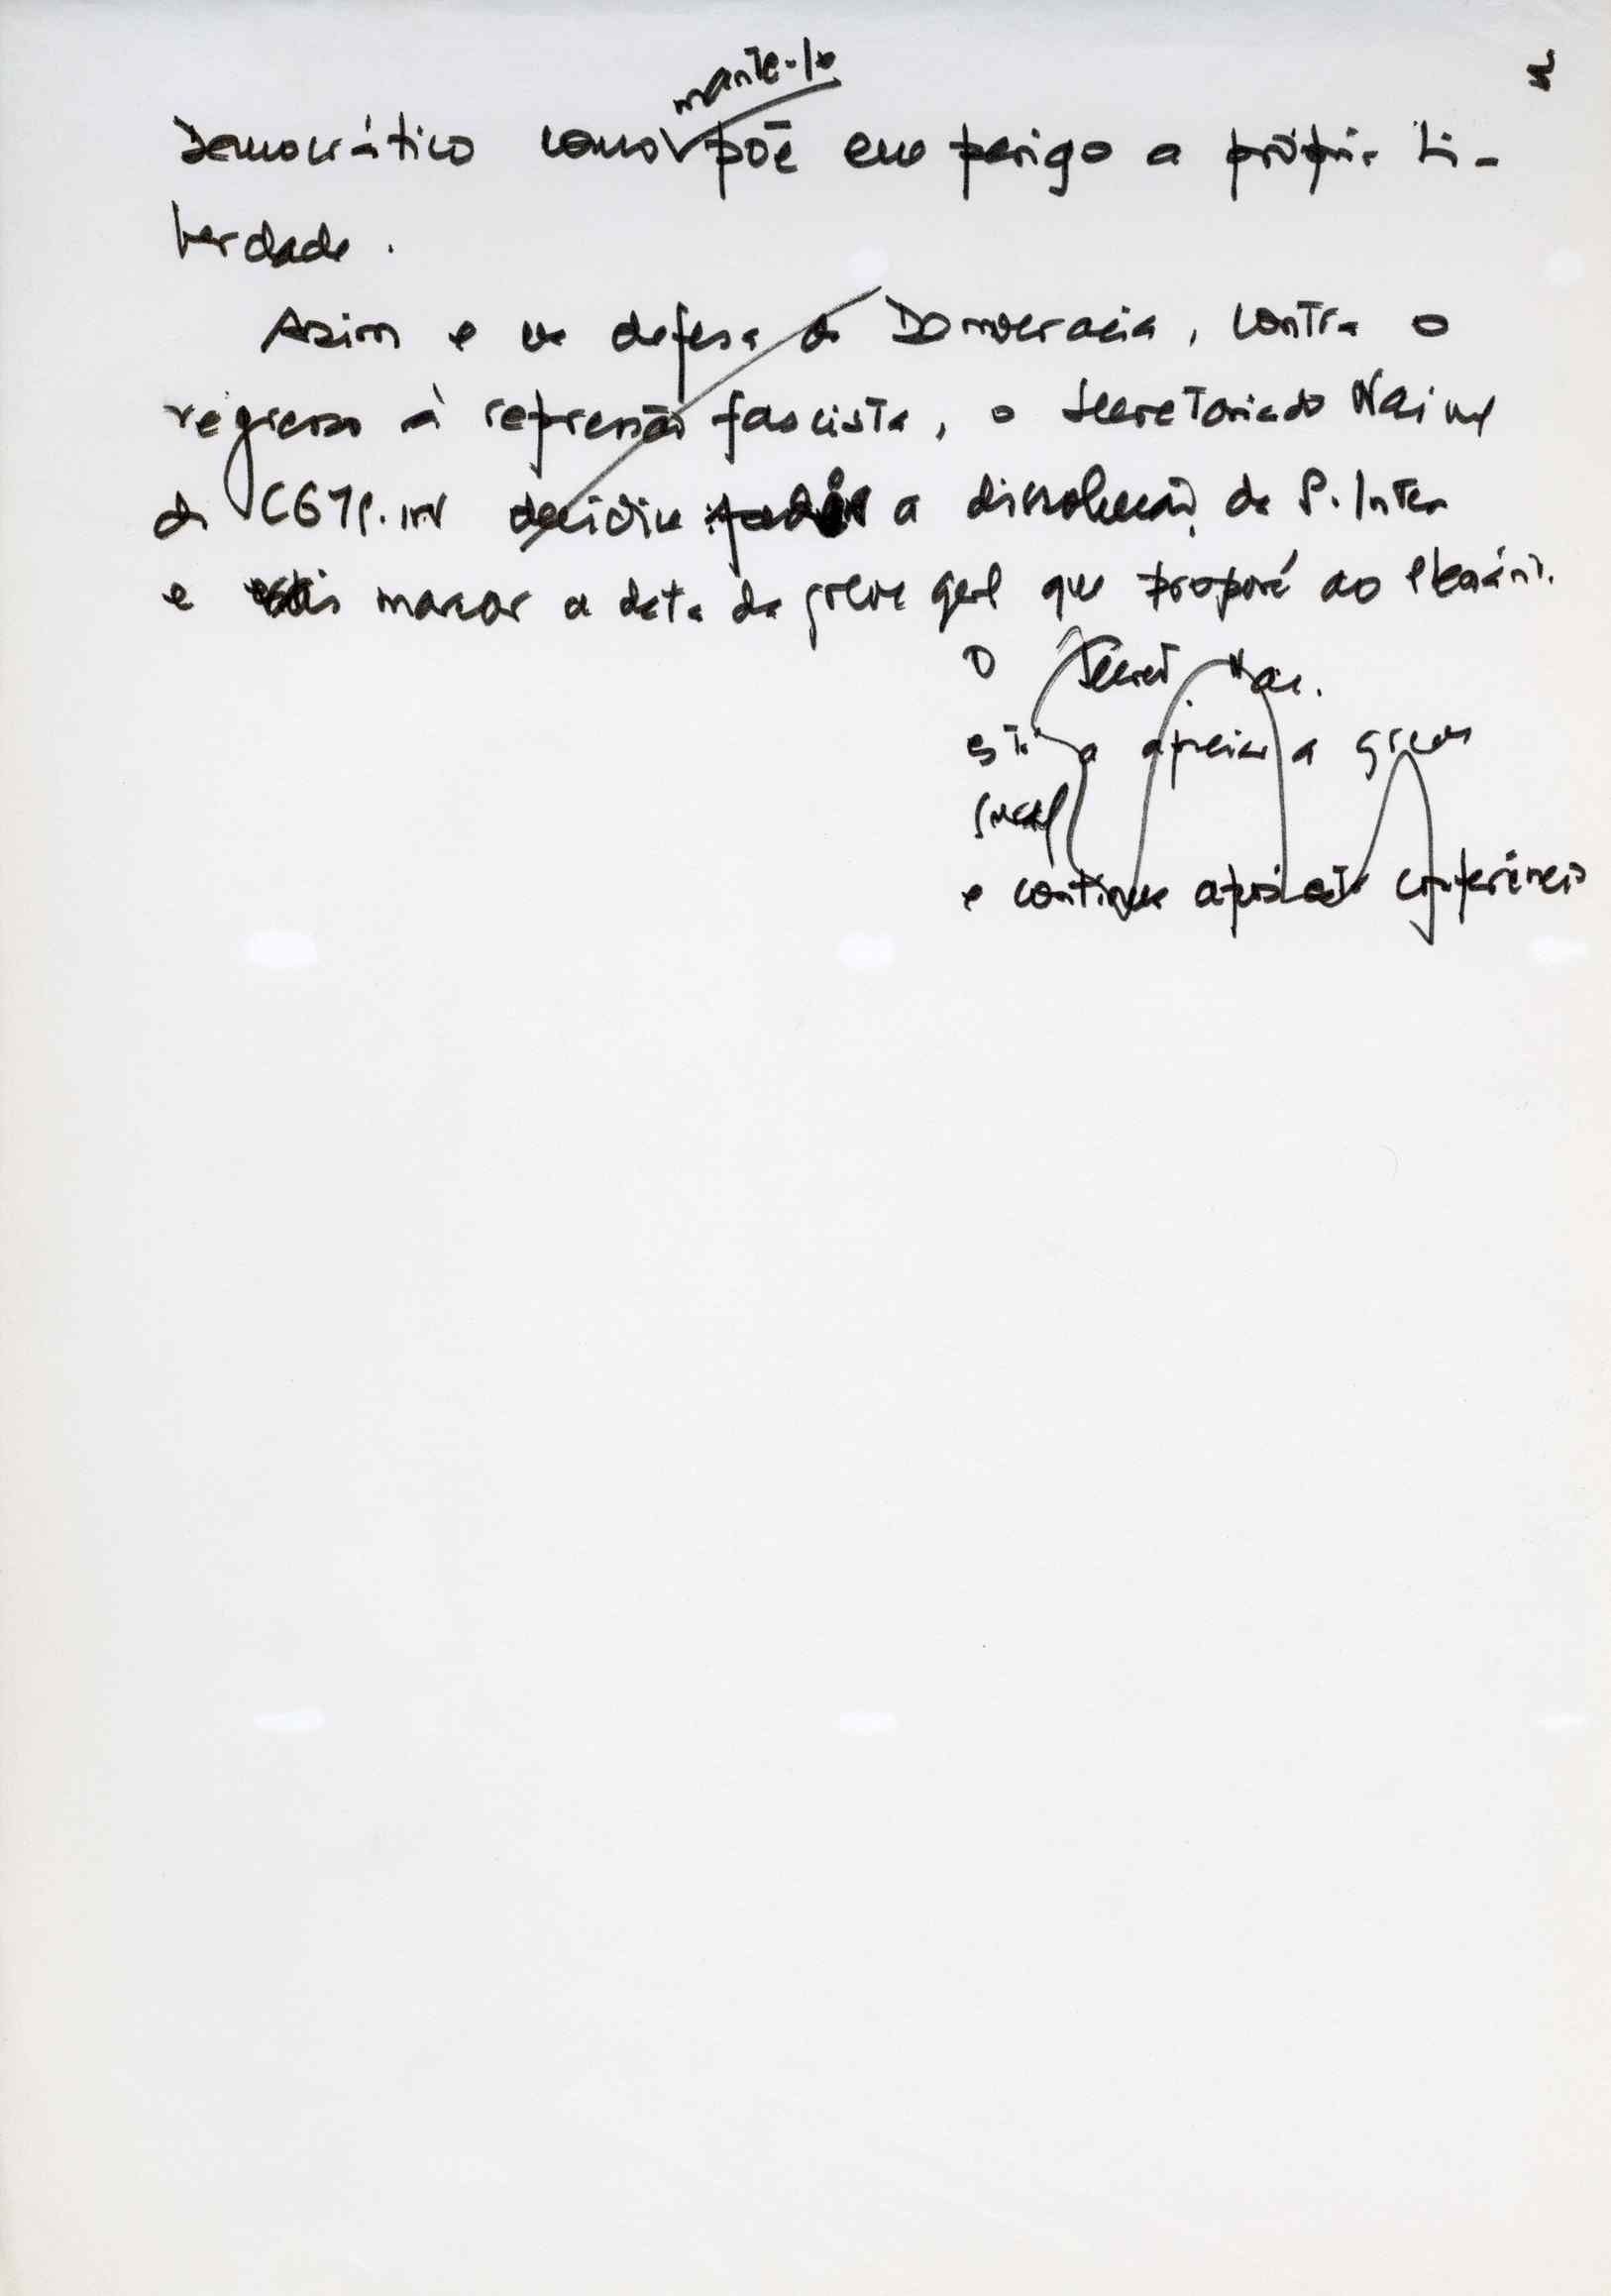 mante-lo
Democrático como põe em perigo a própria Li-
berdade.
Assim e na defesa da Democracia, contra o
regresso à repressão fascista, o Secretariado Naional
da CGTP.IN decidiu a dissolução da P. Inter
e marcar a data da greve geral que proporá ao Plenário.
O Secret Nac.
está a apreciar a greve
geral
e continua após esta conferência